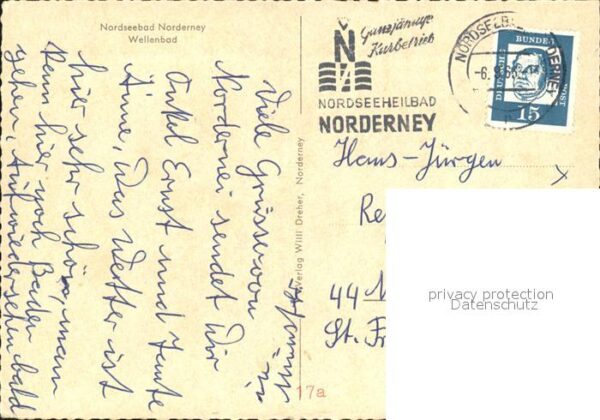 Nordseebad Norderney
Wellenbad
Viele Grüsse von
Nordernei sendet Dir
Onkel Ernst und Tante
Änne, Das Wetter ist
hier sehr schön, man
kann hier noch Baden
gehen, Aufwiedersehen bald
in
Verlag Willi Dreher, Norderney
17a
Ganzjähriger
Kurbetrieb
N
NORDSEEHEILBAD
NORDERNEY
NORDSEEBAD NORDERNEY
-6.9.63
DEUTSCHE BUNDESPOST
15
Hans-Jürgen
Re
44 M
St. Fr
privacy protection
Datenschutz